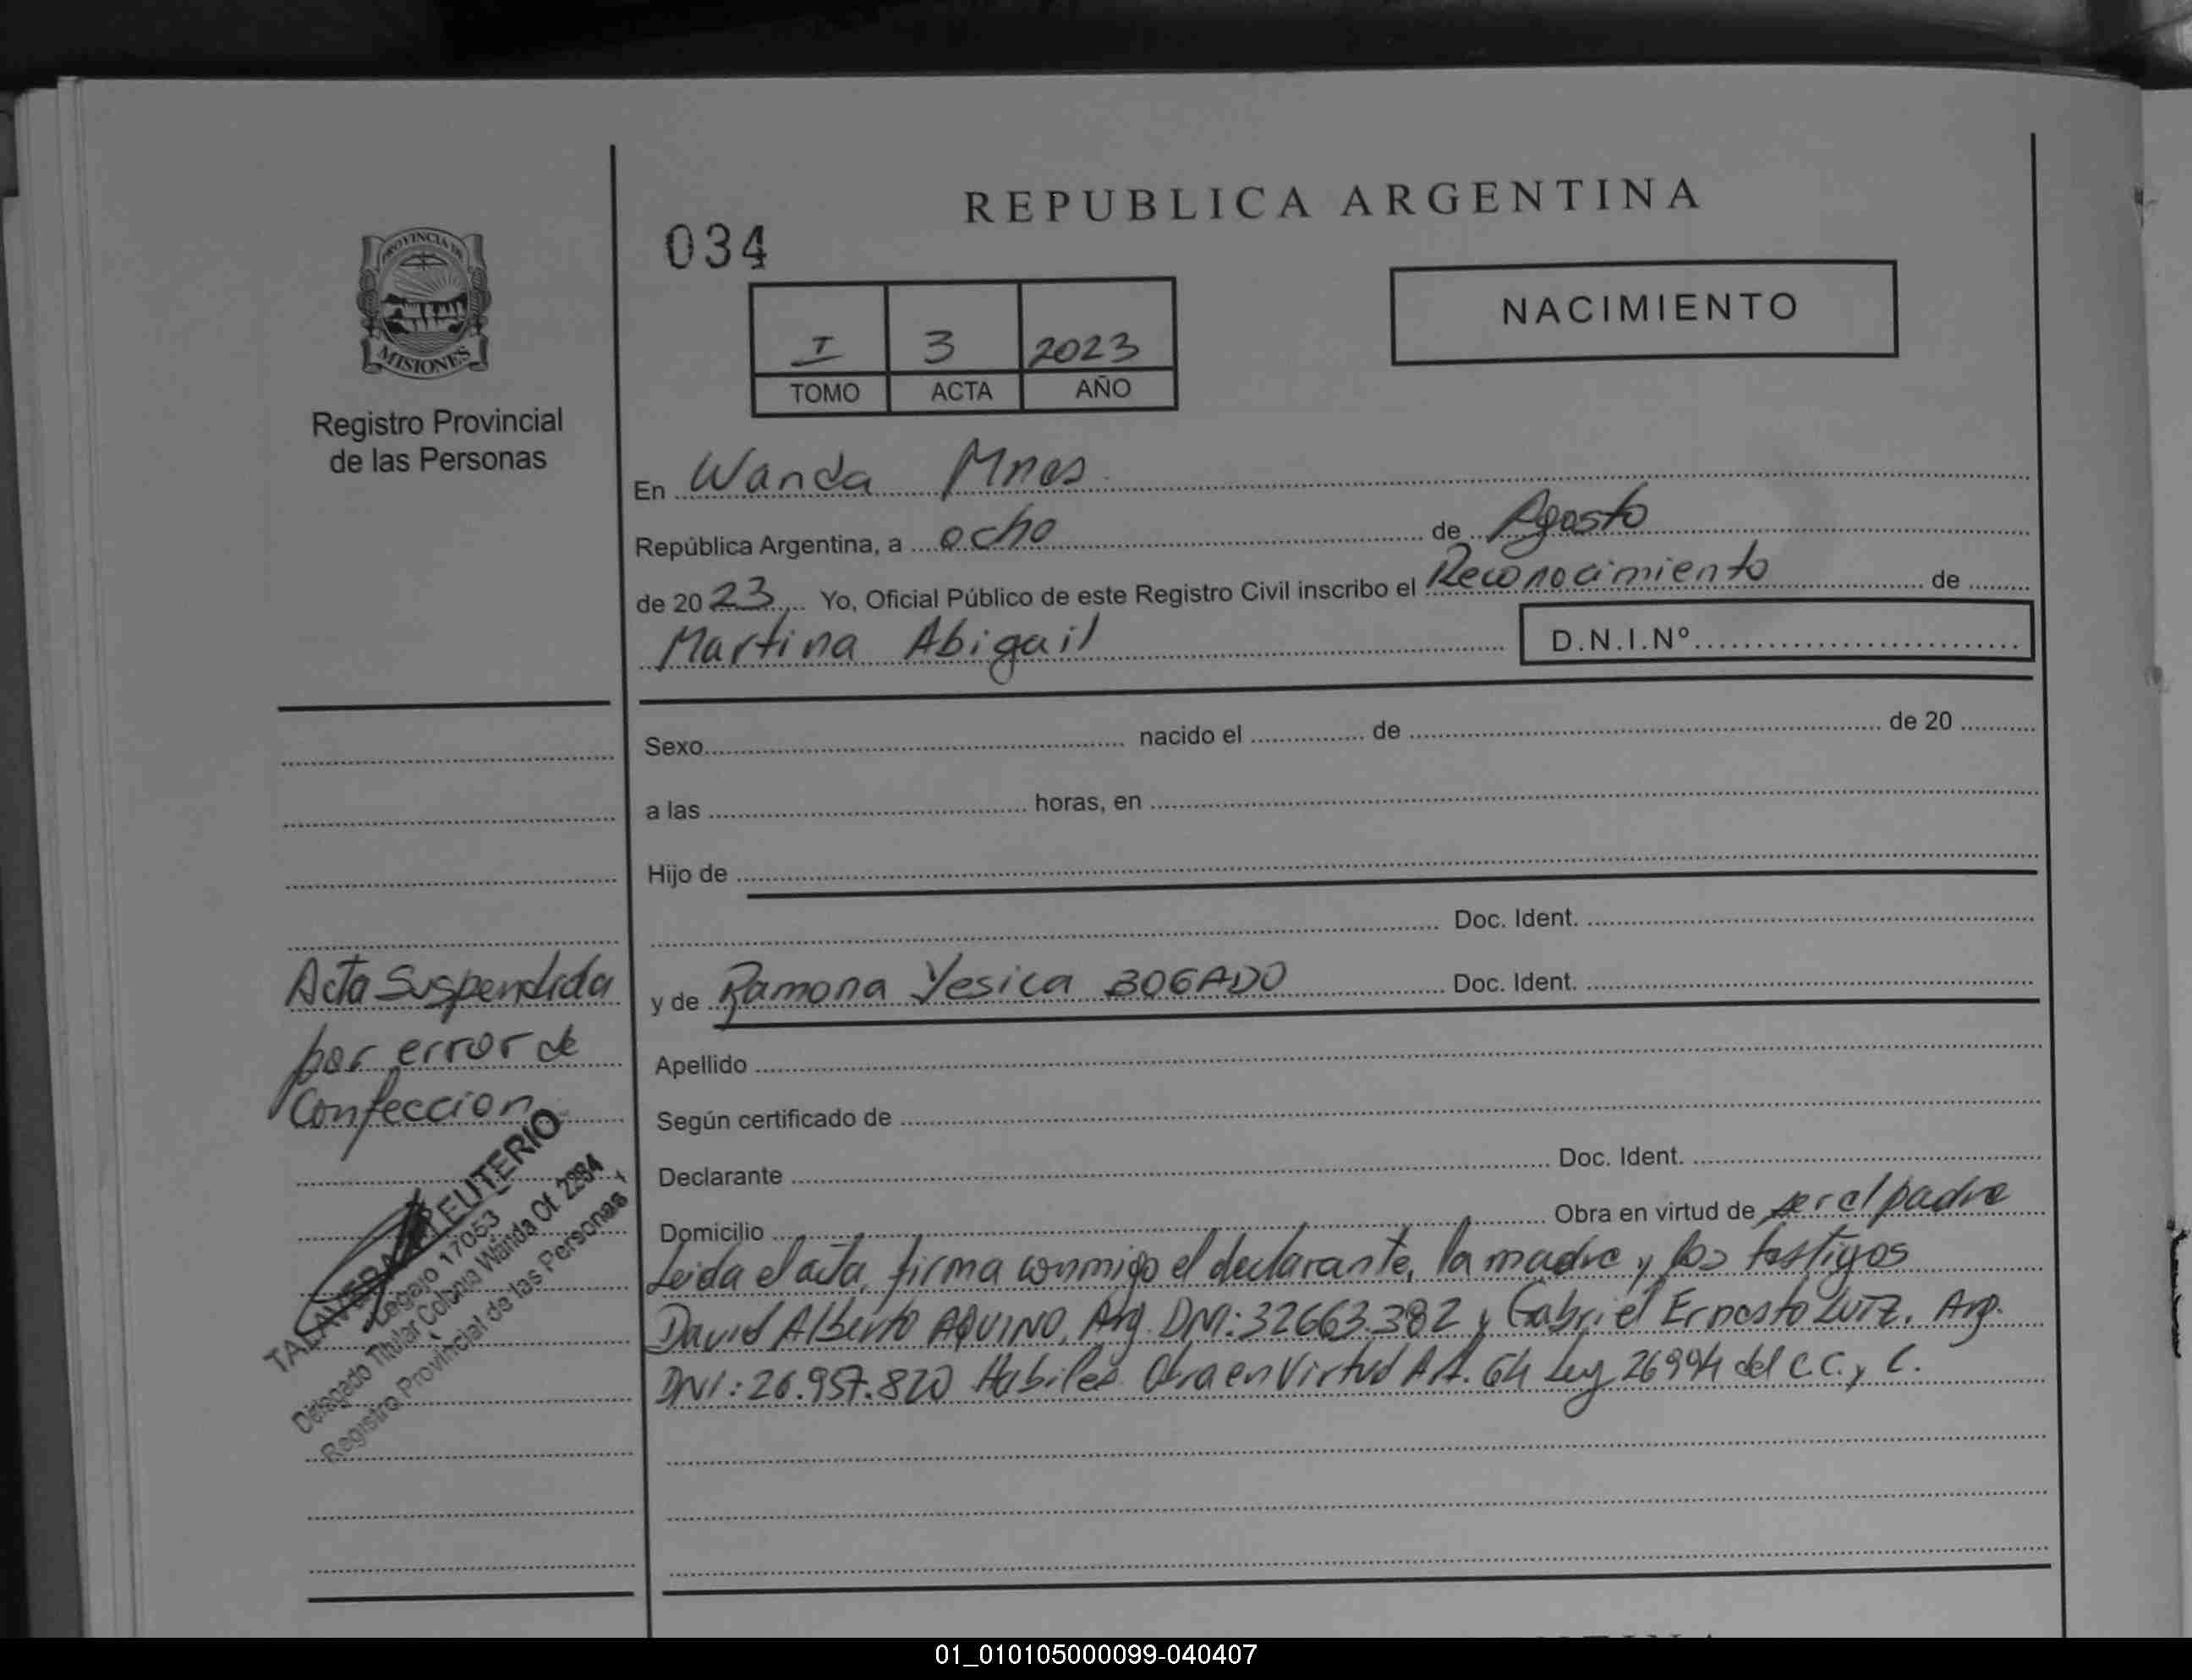 REPUBLICA ARGENTINA
034
NACIMIENTO
I 3 2023
TOMO ACTA AÑO
PROVINCIA DE
MISIONES
Registro Provincial
de las Personas
En Wanda Mnes
República Argentina, a ocho de Agosto
de 2023 Yo, Oficial Público de este Registro Civil inscribo el Reconocimiento de
Martina Abigail D.N.I.Nº
Sexo nacido el de de 20
a las horas, en
Hijo de
Doc. Ident.
y de Ramona Yesica BOGADO Doc. Ident.
Apellido
Según certificado de
Declarante Doc. Ident.
Domicilio Obra en virtud de ser el padre
Leida el acta, firma conmigo el declarante, la madre y los testigos
David Alberto AQUINO, Arg. DNI: 32663.382 y Gabriel Ernesto LUTZ. Arg.
DNI: 26.957.820 Habiles Obra en Virtud Art. 64 Ley 26994 del C.C. y C.
Acta Suspendida
por error de
Confeccion
TALAVERA ELEUTERIO
Legajo 17053
Delegado Titular Colonia Wanda Of. 2284
Registro Provincial de las Personas
01_010105000099-040407